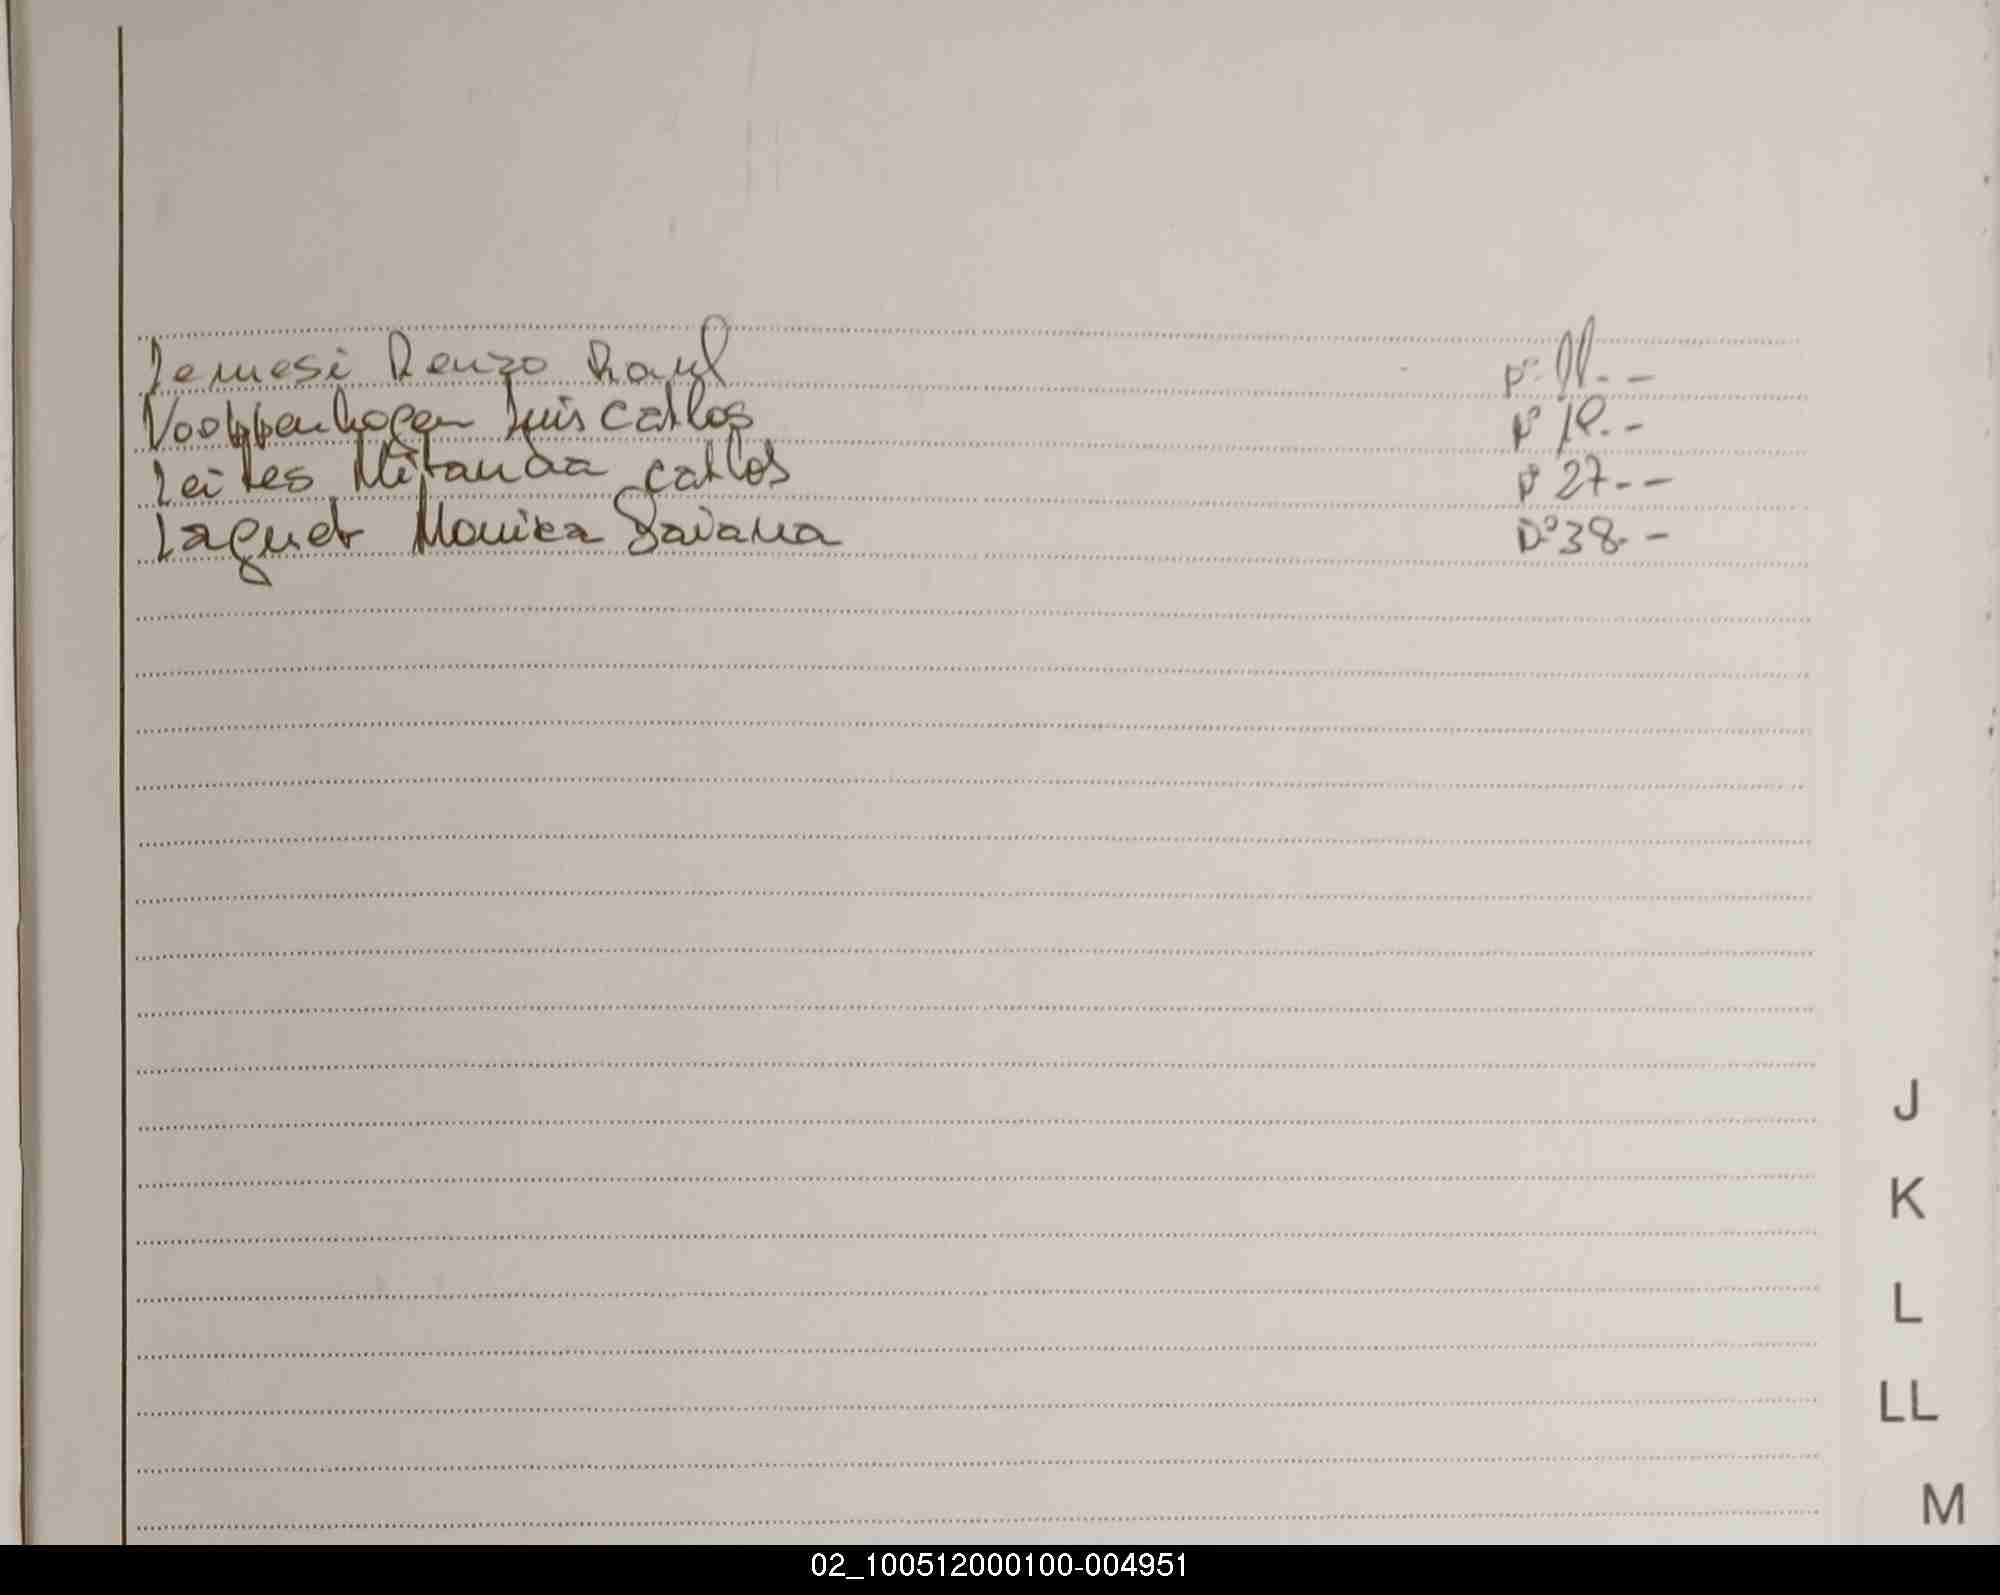 Lemesi Renzo Raul Nº 11.--
Luis Carlos Nº 19.--
Leites Miranda Carlos Nº 27.--
Laguet Monica Daiana Nº 38.--
J
K
L
LL
M
02_100512000100-004951